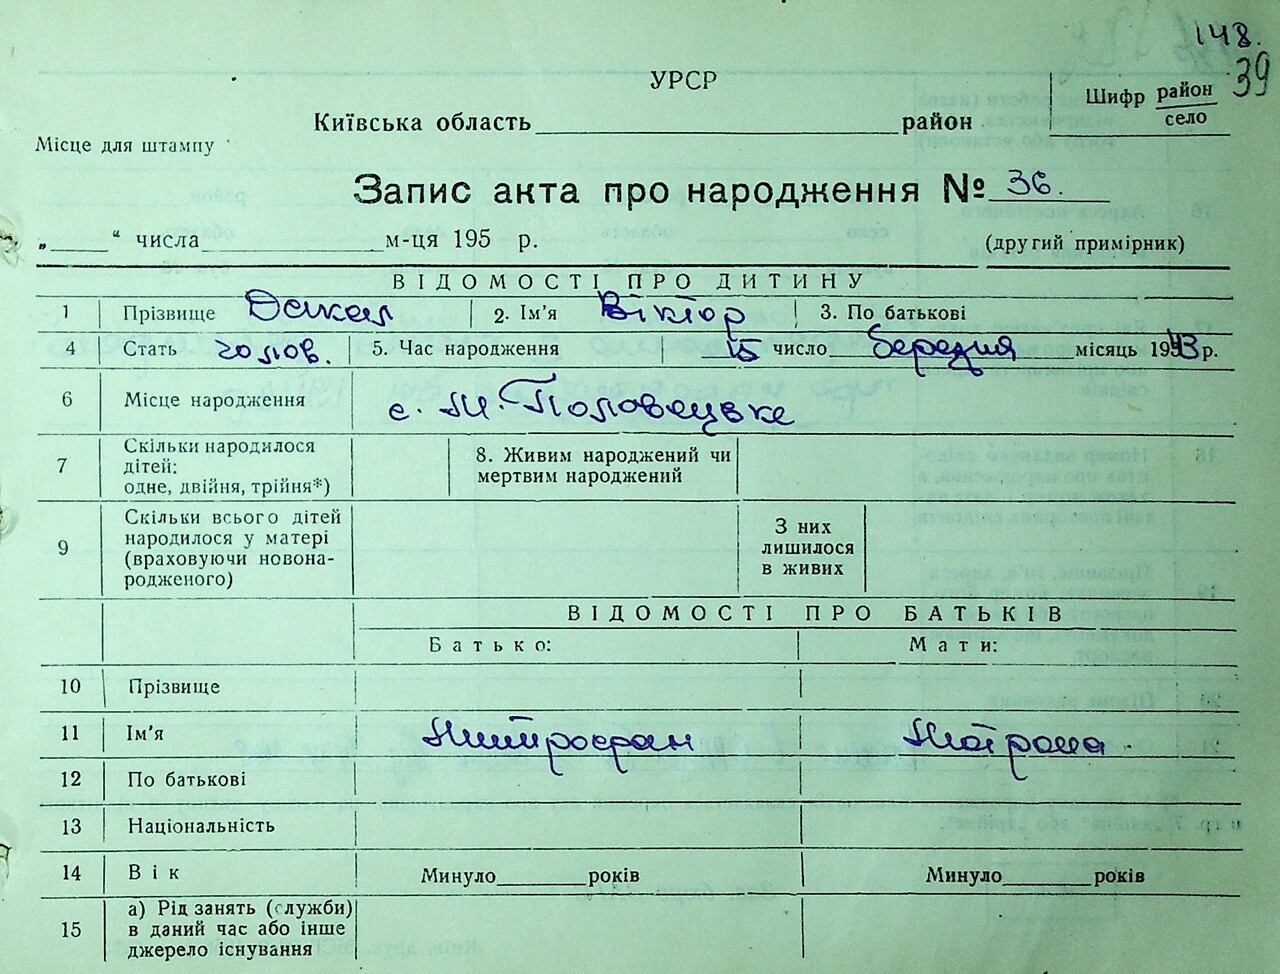 148.
39
УРСР
Київська область район
Шифр район
село
Місце для штампу
Запис акта про народження № 36.
„ “ числа м-ця 195 р.
(другий примірник)
ВІДОМОСТІ ПРО ДИТИНУ
1 Прізвище Дакал 2. Ім'я Віктор 3. По батькові
4 Стать чолов. 5. Час народження 15 число березня місяць 1943 р.
6 Місце народження с. М. Половецьке
7 Скільки народилося
дітей:
одне, двійня, трійня*)
8. Живим народжений чи
мертвим народжений
9 Скільки всього дітей
народилося у матері
(враховуючи новона-
родженого)
З них
лишилося
в живих
ВІДОМОСТІ ПРО БАТЬКІВ
Батько: Мати:
10 Прізвище
11 Ім'я Митрофан Мотрона
12 По батькові
13 Національність
14 Вік Минуло років Минуло років
15 а) Рід занять (служби)
в даний час або інше
джерело існування